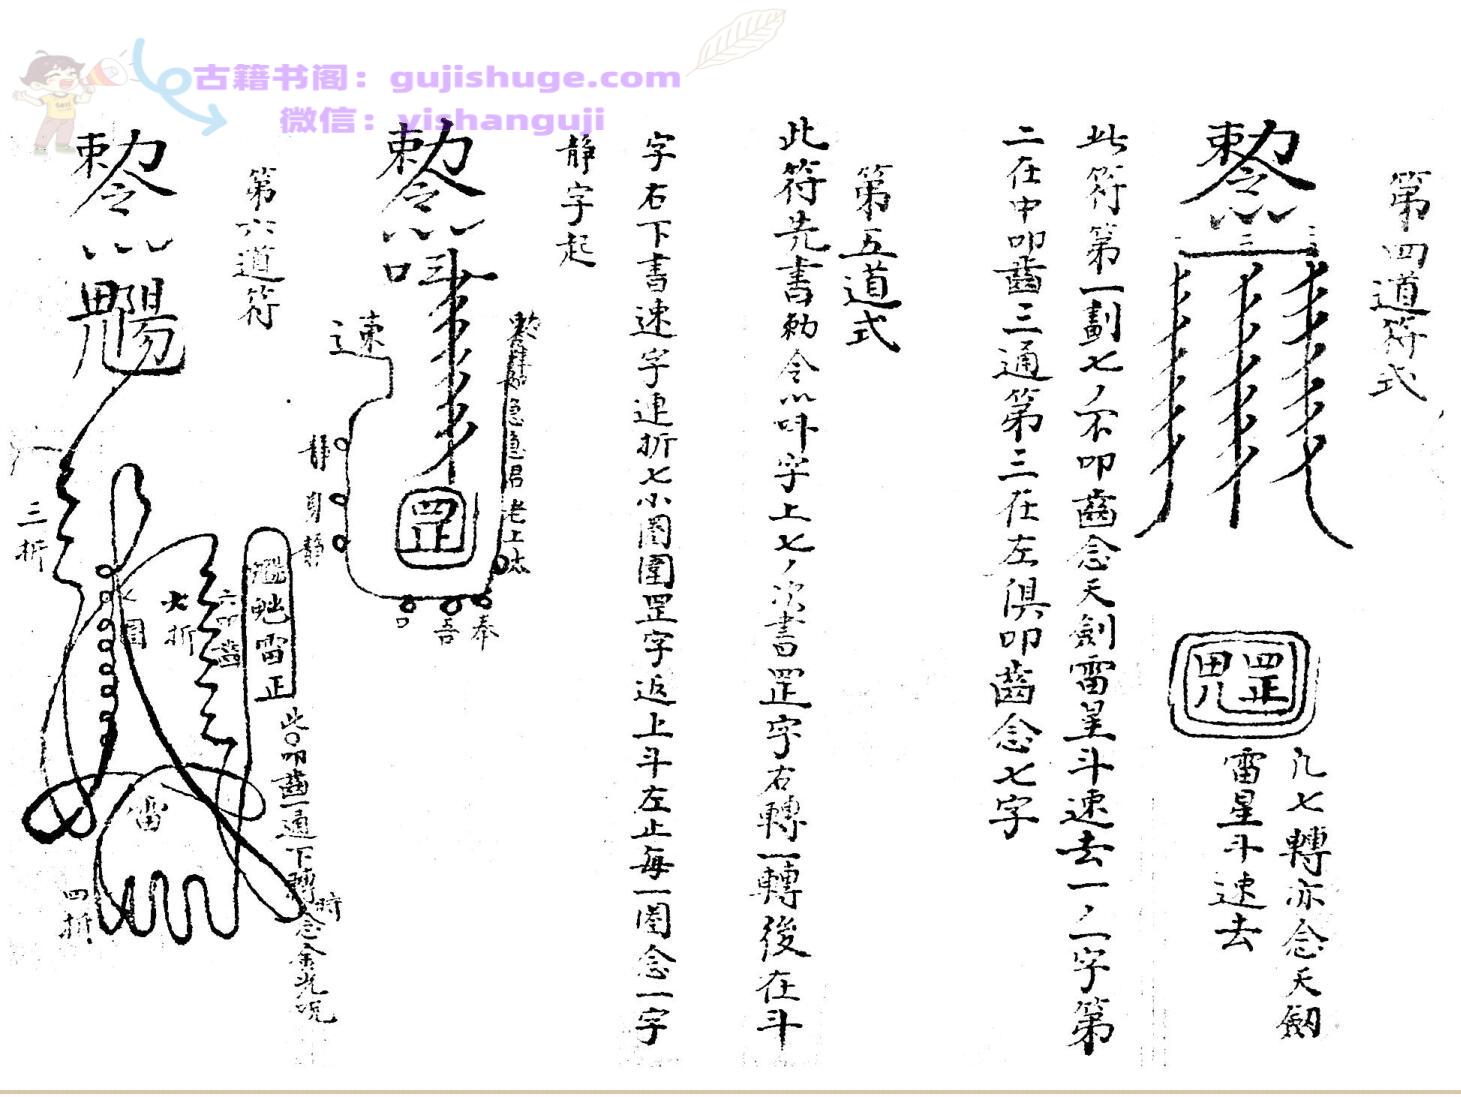 古籍书阁：gujishuge.com
微信：yishanguji
第四道符式
勅令
罡
凡七轉亦念天劍
雷星斗速去
此符第一劃七丿不叩齒念天劍雷星斗速去一丿一字第
二在中叩齒三通第三在左俱叩齒念七字
第五道式
此符先書勅令
字上七丿次書罡字右轉一轉後在斗
字右下書速字連折七小圈圍罡字返上斗左止每一圈念一字
靜字起
勅令
急急
君老上太
罡
奉
吾
口
速
靜
身
靜
第六道符
勅令
三折
七圈
六折
六叩齒
雷正
此〇叩齒一通下轉時念金光咒
雷
四折